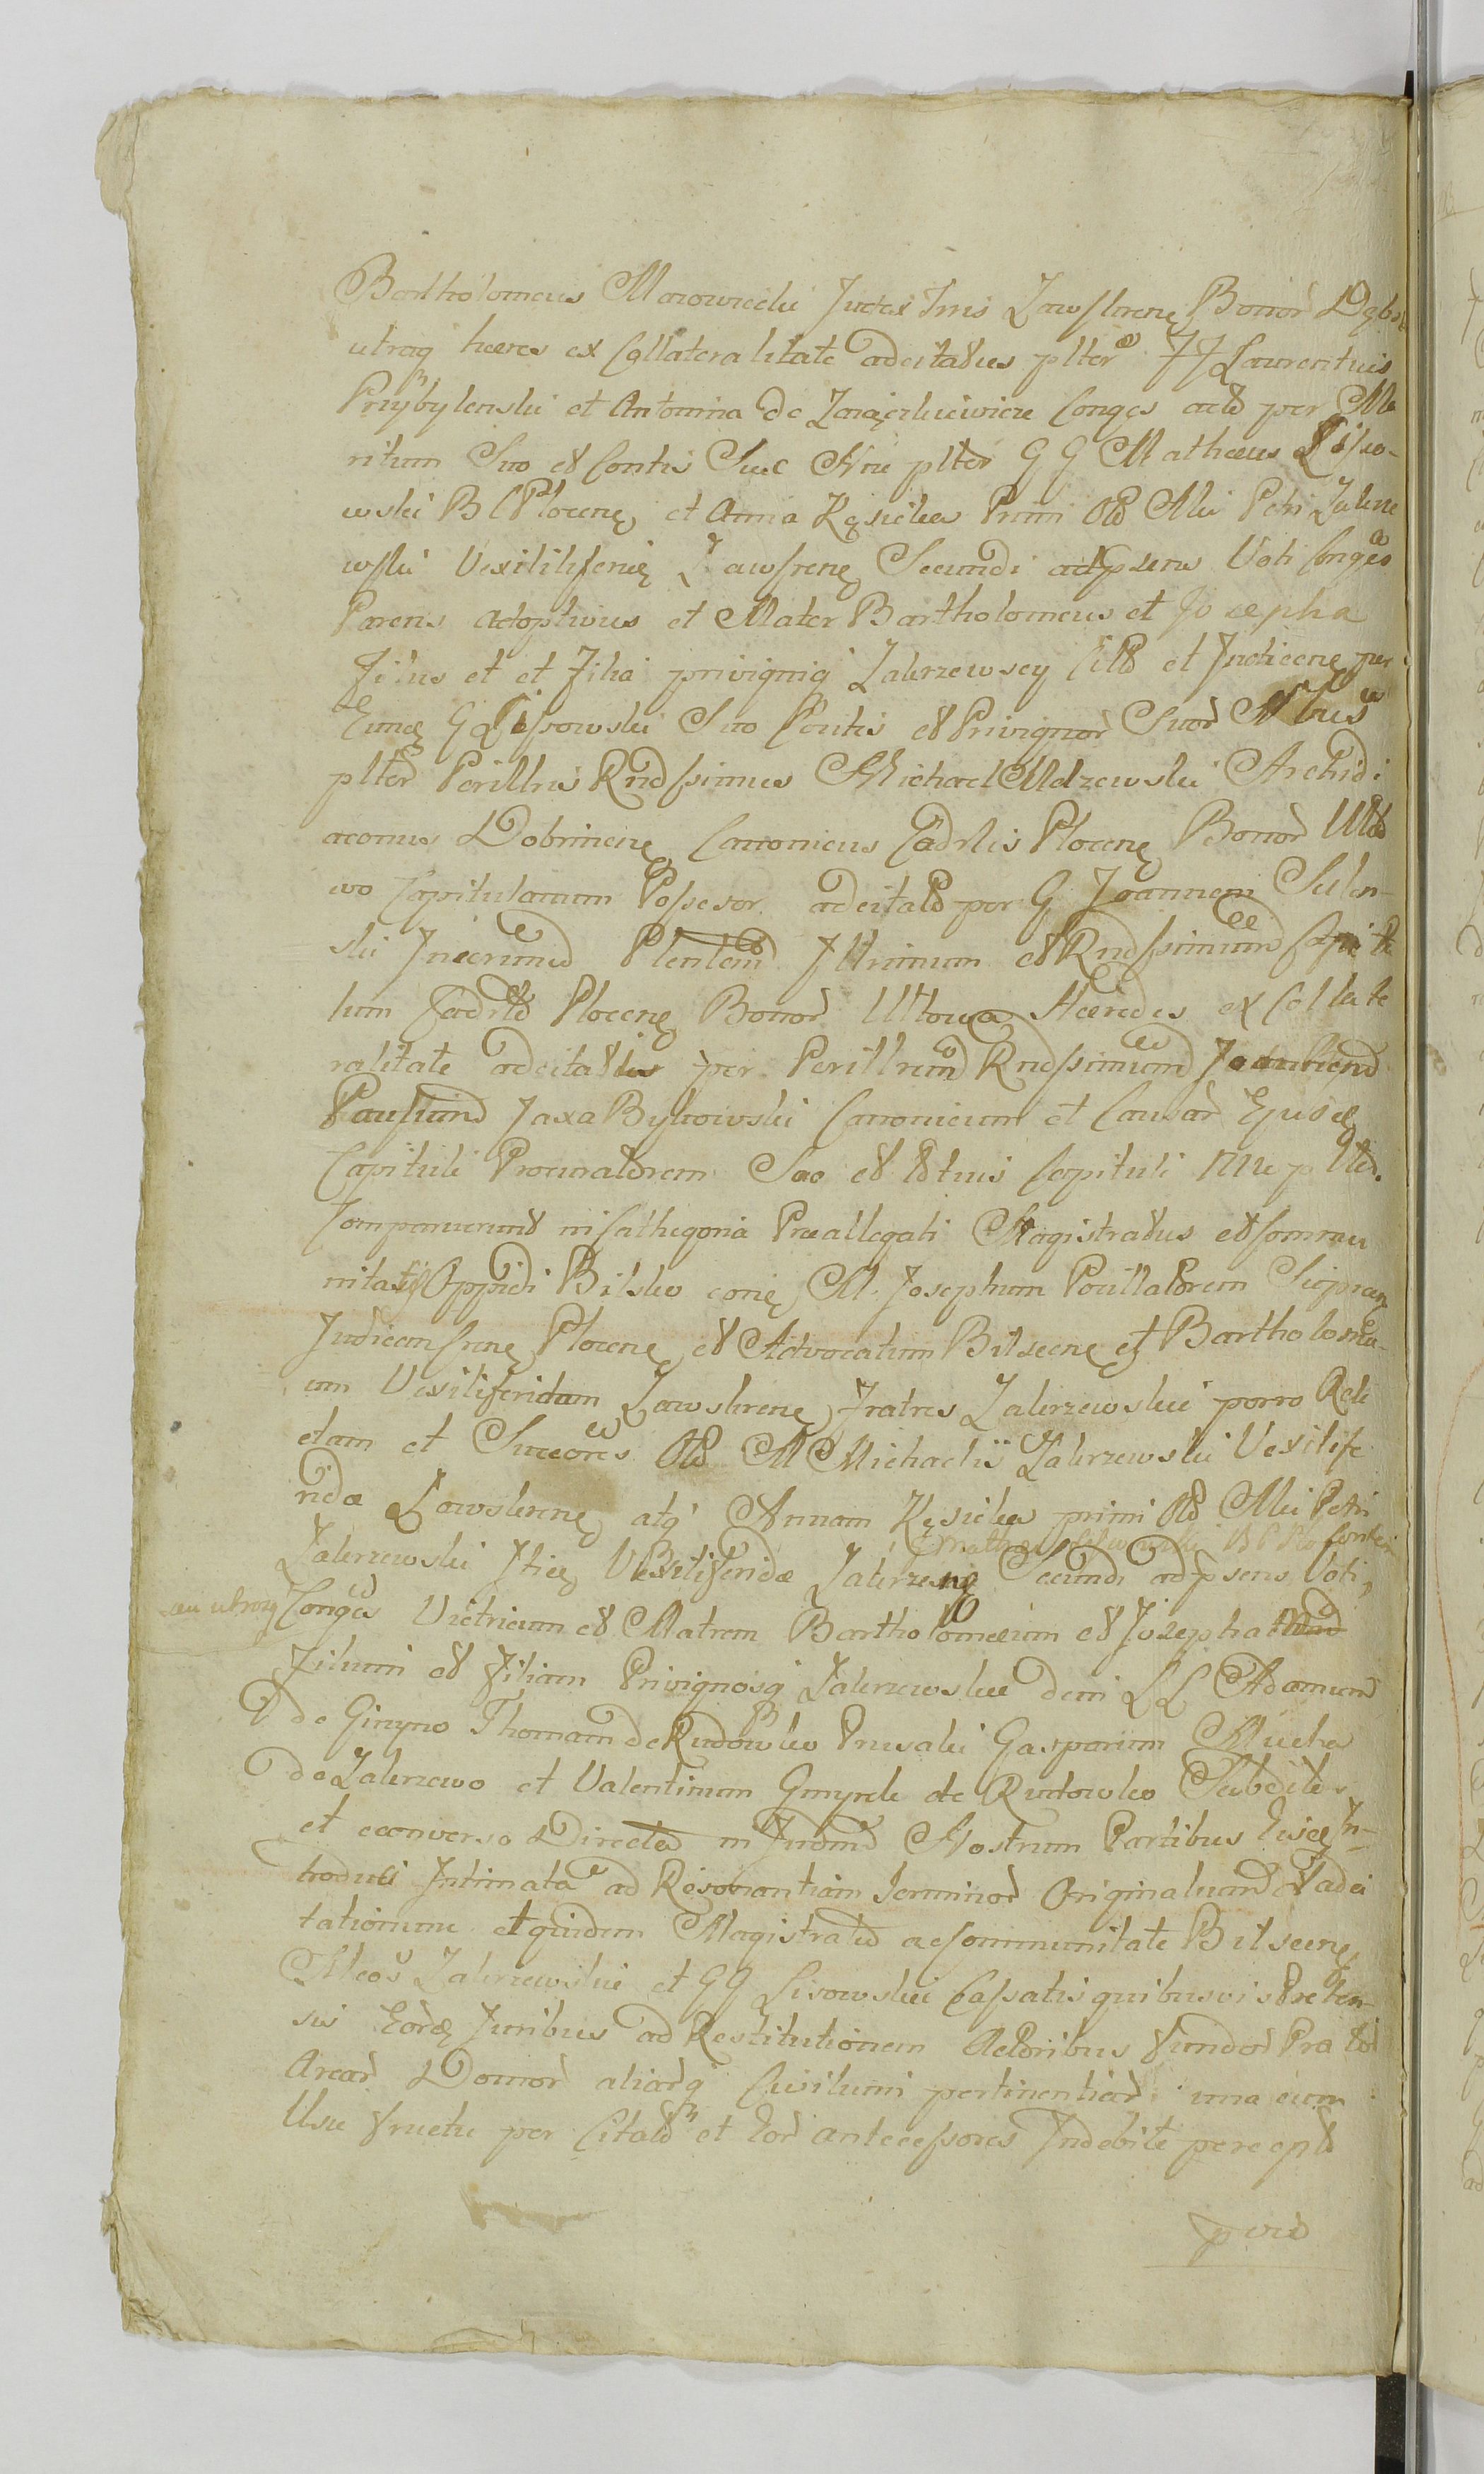 Bartholomeus Mazowiecki Judex Trris Zawskrene Bonor Dębsk
utraq heeres ex Collateralitate adcitatus plter JJ Laurentius
Przybylenski et Antonina de conges actd per Ma
ritum Suo et Contis Suae Nne plter GG Matheus Lisso-
wski B C Plocene et Anna Kęsicka Primi Old Mci Petri Zakrze
wski Vexilliferis Zawsrene Secundi adpsens Voti Conges
Parens adoptivus et Mater Bartholomeus et Jozepha
Filius et et Filia privigniq Zakrzewscy Citd et Indicene per
Eund G Lissowski Suo Contis et Privignor Suor Nbus
plter Perillris Rndssimus Michael Mdzewski Archidi
aconus Dobrinene Canonicus Cadrlis Plocene Bonor Utto
wo Capitularium Possesor adcitatd per G Joannem Sulen-
ski Plentem Illrimum et Rndssimum Capitu
lum Cadrld Plocene Bonor Uttowo Heeredes ex Collate
ralitate adcitatus per Perillrem Rndssimum
Jaxa Bykowski Canonicum et Causar Ejusd
Capituli Procuratorem Suo et totius Capituli nne plter.
Comparuerunt in Cathegoria Praeallegati Magistratus et Commu
nitatis Oppidi Bilsko cone M. Josephum Pocillatorem Sieprcen
Judicem Plocene et Advocatum Bilscene et Bartholomae-
um Vexiliferidam Zawskrene Fratres Zakrzewskie porro Reli
ctam et Succores Old M Michaelis Zakrzewski Vexilife
ridae Zawskrene atq Annam Kęsicka primi Old Mci Petri
Zakrzewski Itid Vexilliferidae Zakrzene Secundi adpsens Voti
Conges Vitricum et Matrem Bartholomeum et Jozepham
Filium et Filiam Privignosq Zakrzewskie demi LL Adamum
de Ginyno Thomam de Rudowko Prusaki Gasparum Mucha
de Zakrzewo et Valentinum Gmyrek de Rudowko Subditos
et econverso Directa in Judmd Nostrum Partibus Eisd In-
troduci Intimata ad Resonantiam Terminor Originalium et adci
tationum et quidem Magistratu ac Communitate Bilscene
Mcos Zakrzewskie et GG Lisowskie Cassatis quibusvis Preten-
sis Eord Juribus ad Restitutionem Actoribus Fundor Prator
Arear Domor aliarq Civilium pertinentiar una cum
Usu Fructu per Citatd et Eor antecessores Indebite perceptd